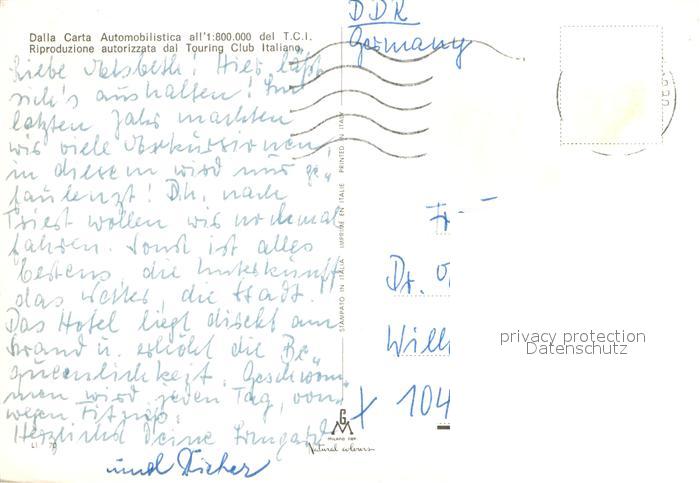 Dalla Carta Automobilistica all'1:800.000 del T.C.I.
Riproduzione autorizzata dal Touring Club Italiano.
Liebe Ilsbeth! Hier läßt
sich's aushalten! Im
letzten Jahr machten
wir viele Exkursionen,
in diesem wird nur ge„
faulenzt! D.h. nach
Triest wollen wir nochmal
fahren. Sonst ist alles
bestens, die Unterkunft
das Wetter, die Stadt.
Das Hotel liegt direkt am
Strand u. erhöht die Be„
quemlichkeit. Geschwom„
men wird jeden Tag, von
wegen Fitness.
Herzlichst Deine Irmgard
und Dieter
STAMPATO IN ITALIA IMPRIMÉ EN ITALIE PRINTED IN ITALY
DDR
Germany
Fr.
Dr.
Wilh
X 104
privacy protection
Datenschutz
GM
MILANO
Natural colours